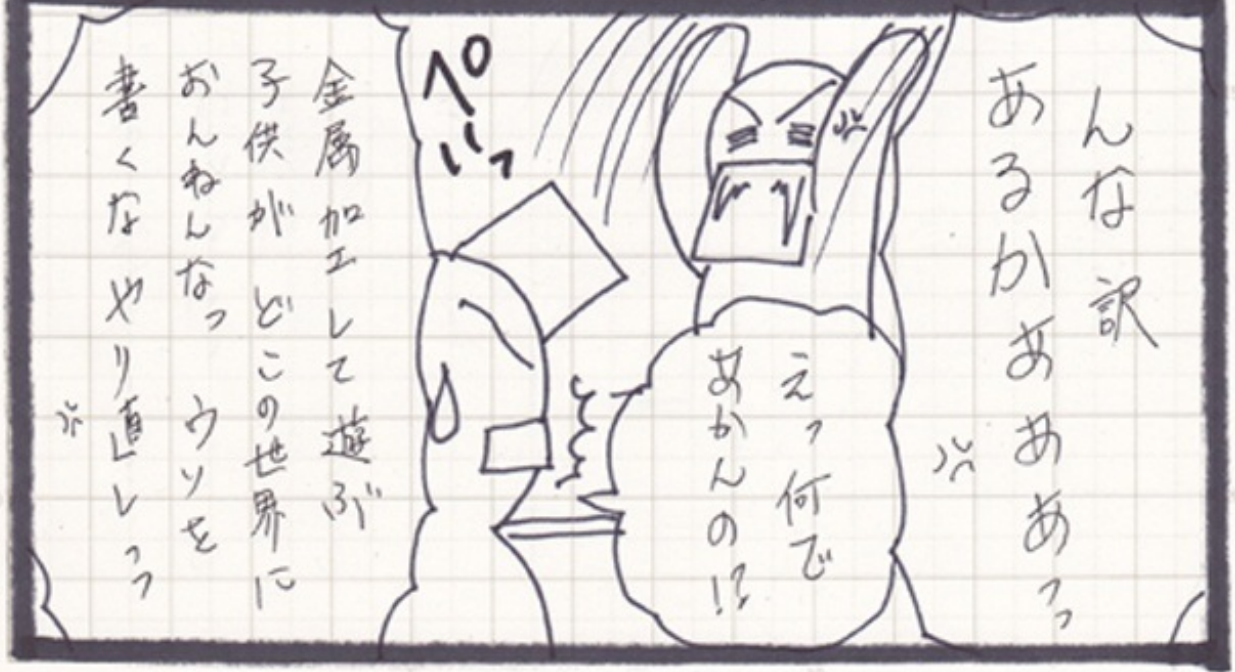 んな訳
あるかあああっっ
えっ何で
あかんの!?
ぺいっ
金属加工して遊ぶ
子供がどこの世界に
おんねんなっ ウソを
書くな やり直しっっ